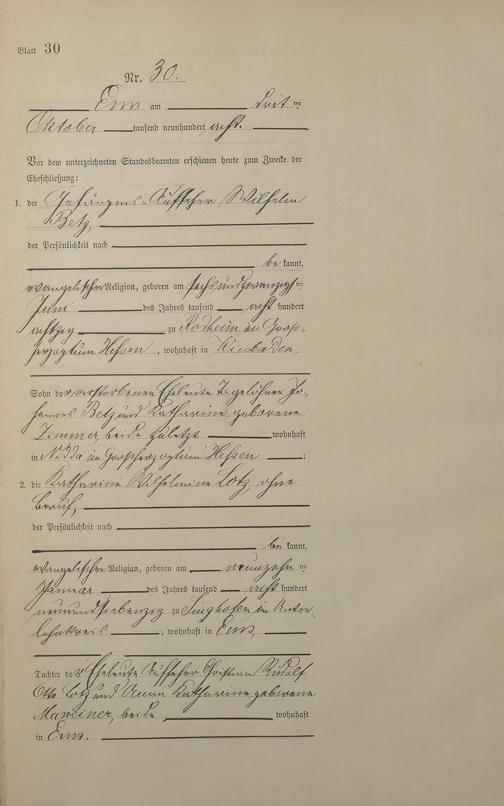 Blatt 30
Nr. 30.
Ems am dritten
Oktober tausend neunhundert acht.
Vor dem unterzeichneten Standesbeamten erschienen heute zum Zwecke der
Eheschließung:
1. der Gefängnis-Aufseher Wilhelm
Betz,
der Persönlichkeit nach
bekannt,
evangelischer Religion, geboren am sechsundzwanzigsten
Juni des Jahres tausend acht hundert
achtzig zu Rodheim, im Groß-
herzogtum Hessen, wohnhaft in Wiesbaden,
Sohn der verstorbenen Eheleute Tagelöhner Jo-
hannes Betz und Katharine geborene
Zimmer, beide zuletzt wohnhaft
in Nidda im Großherzogtum Hessen;
2. die Katharine Wilhelmine Lotz, ohne
Beruf,
der Persönlichkeit nach
bekannt,
evangelischer Religion, geboren am neunzehnten
Januar des Jahres tausend acht hundert
neunundsiebenzig zu Singhofen, im Unter-
lahnkreis, wohnhaft in Ems,
Tochter der Eheleute Aufseher Christian Rudolf
Otto Lotz und Anna Katharine geborene
beide wohnhaft
in Ems.